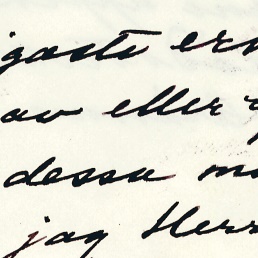 igaste er
av eller
dessa m
jag Herr